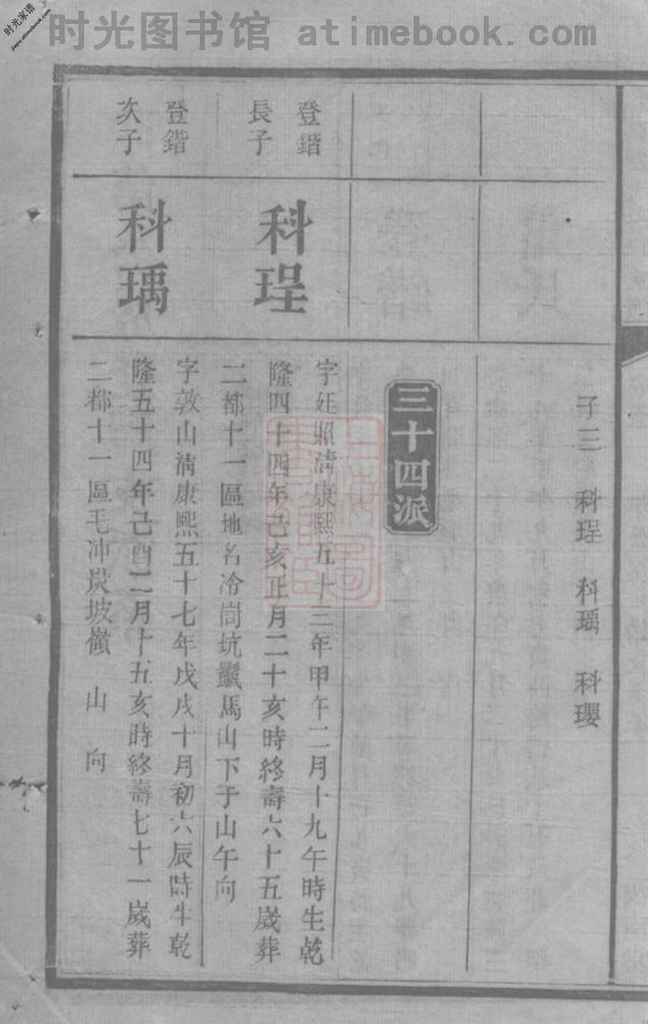 时光图书馆 atimebook.com
时光家谱
www.atimebook.com
子三 科珵 科瑀 科瓔
三十四派
登鍇
長子
科珵
字廷照清康熙五十三年甲午二月十九午時生乾
隆四十四年己亥正月二十亥時終壽六十五歲葬
二都十一區地名冷尚坑嚴馬山下子山午向
登鍇
次子
科瑀
字敦山清康熙五十七年戊戌十月初六辰時生乾
隆五十四年己酉二月十五亥時終壽七十一歲葬
二都十一區毛沖炭坡嶺 山 向